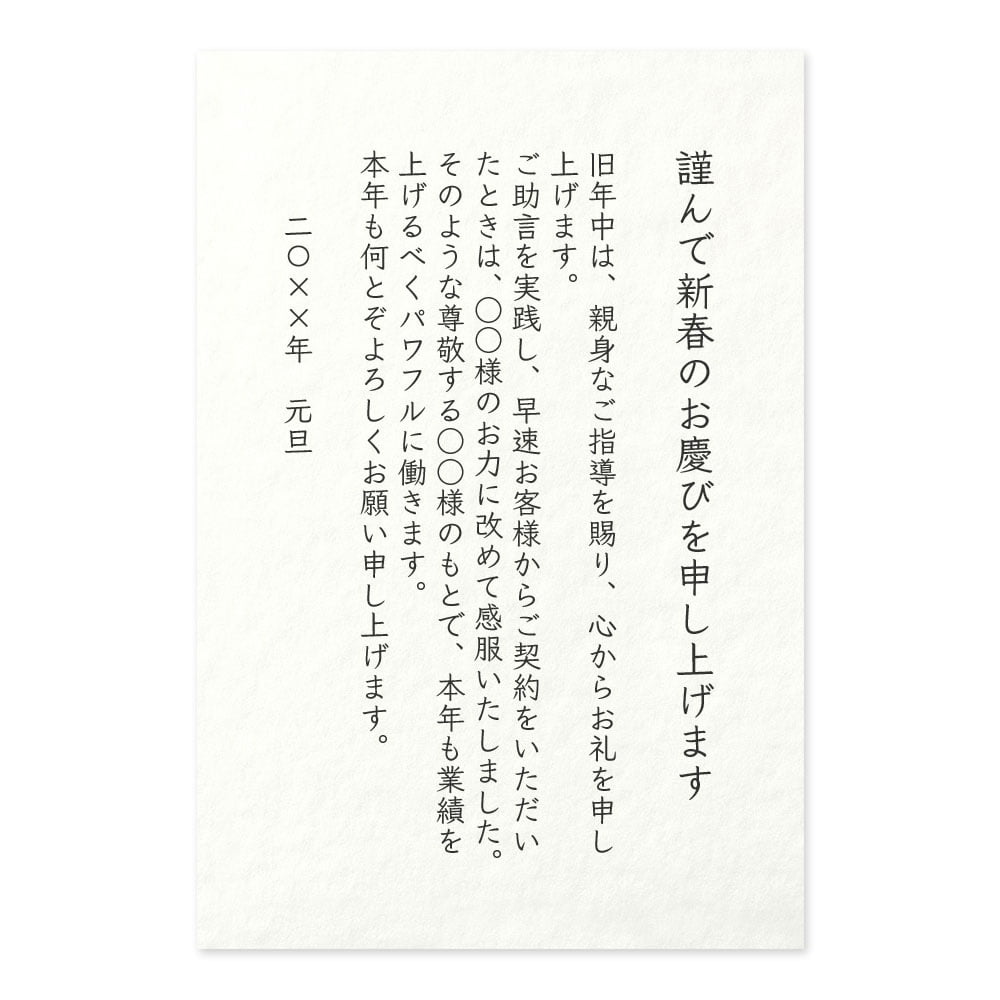 謹んで新春のお慶びを申し上げます
旧年中は、親身なご指導を賜り、心からお礼を申し
上げます。
ご助言を実践し、早速お客様からご契約をいただい
たときは、〇〇様のお力に改めて感服いたしました。
そのような尊敬する〇〇様のもとで、本年も業績を
上げるべくパワフルに働きます。
本年も何とぞよろしくお願い申し上げます。
二〇××年　元旦